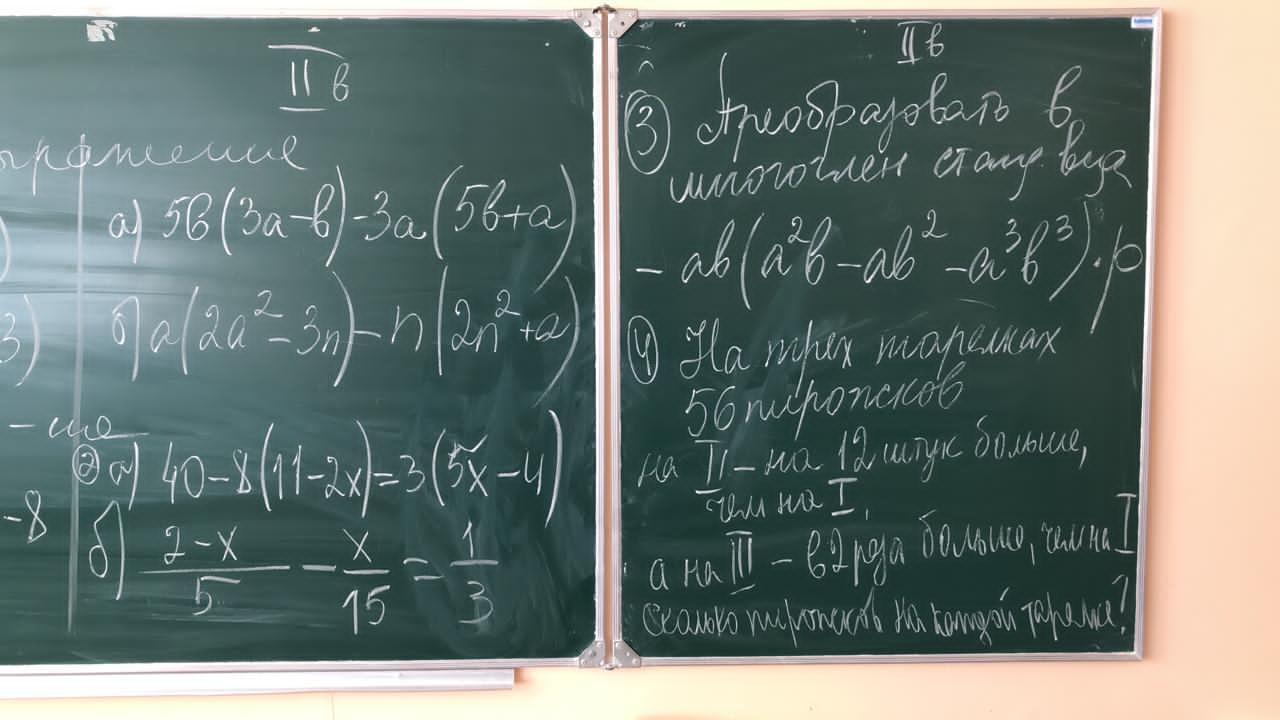 II в
а) 5b(3a-b)-3a(5b+a)
б) a(2a²-3n)-n(2n²+a)
3)
-8
② а) 40-8(11-2x)=3(5x-4)
б) (2-x)/5 - x/15 = 1/3
II в
③ Преобразовать в
многочлен станд. вида
-ab(a²b-ab²-a³b³)·p
④ На трех тарелках
56 пирожков
на II - на 12 штук больше,
чем на I,
а на III - в 2 раза больше, чем на I
Сколько пирожков на каждой тарелке?